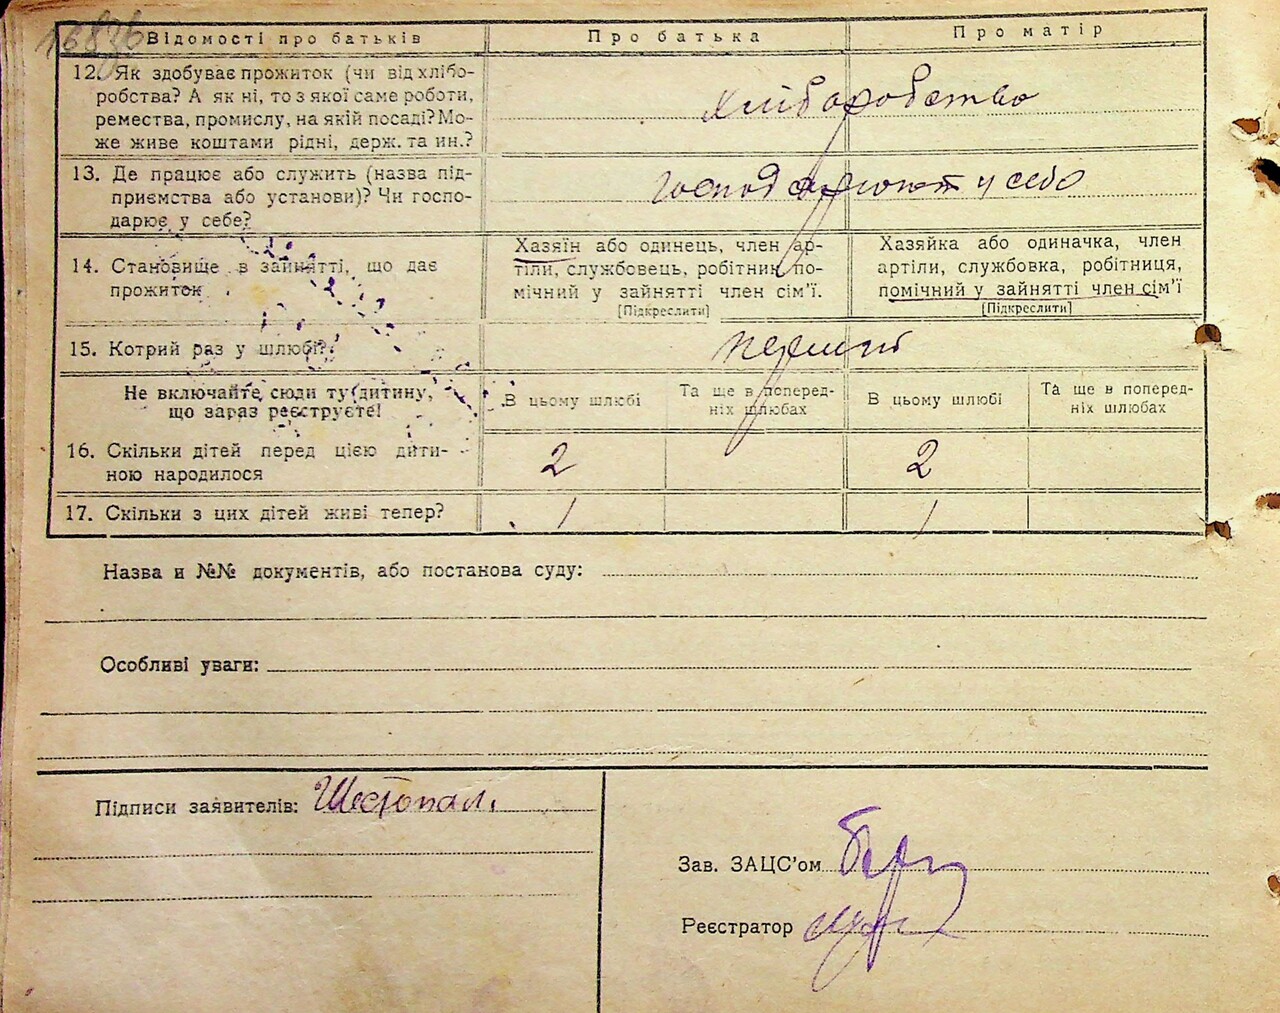 Відомості про батьків
Про батька
Про матір
12. Як здобуває прожиток (чи від хлібо-
робства? А як ні, то з якої саме роботи,
ремества, промислу, на якій посаді? Мо-
же живе коштами рідні, держ. та ин.?
хліборобство
13. Де працює або служить (назва під-
приємства або установи)? Чи госпо-
дарює у себе?
у себе
14. Становище в зайнятті, що дає
прожиток
Хазяїн або одинець, член ар-
тіли, службовець, робітник, по-
мічний у зайнятті член сім'ї.
[Підкреслити]
Хазяйка або одиначка, член
артіли, службовка, робітниця,
помічний у зайнятті член сім'ї
[Підкреслити]
15. Котрий раз у шлюбі?
перший
Не включайте сюди ту дитину,
що зараз реєструєте!
В цьому шлюбі
Та ще в поперед-
ніх шлюбах
В цьому шлюбі
Та ще в поперед-
ніх шлюбах
16. Скільки дітей перед цією дити-
ною народилося
2
2
17. Скільки з цих дітей живі тепер?
1
1
Назва и №№ документів, або постанова суду:
Особливі уваги:
Підписи заявителів: Шестопал.
Зав. ЗАЦС'ом
Реєстратор